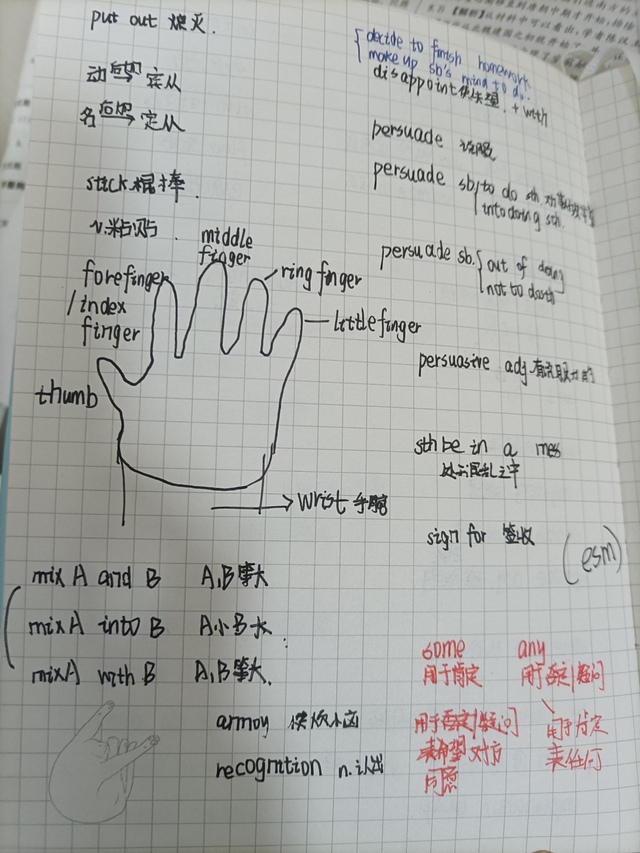 put out 熄灭.
动 后加→ 宾从
名 后加→ 定从
stick 棍棒.
v.粘贴.
middle
finger
forefinger
/index
finger
ring finger
little finger
thumb
wrist 手腕
mix A and B A,B拿大
mix A into B A小B大.
mixA with B A,B拿大.
使烦恼
recogration n.认出
decide to finish homework
make up sb's mind to do.
disappoint 使失望. + with
persuade 说服
persuade sb to do sth
into doing sth.
persuade sb. out of doing
not to do sth
persuasive adj.有说服力的
sth be in a mess
处于混乱之中
sign for 签收
(esm)
some any
用于肯定 用于否定/疑问
用于否定/疑问 用于肯定
表希望对方 表任何
同意